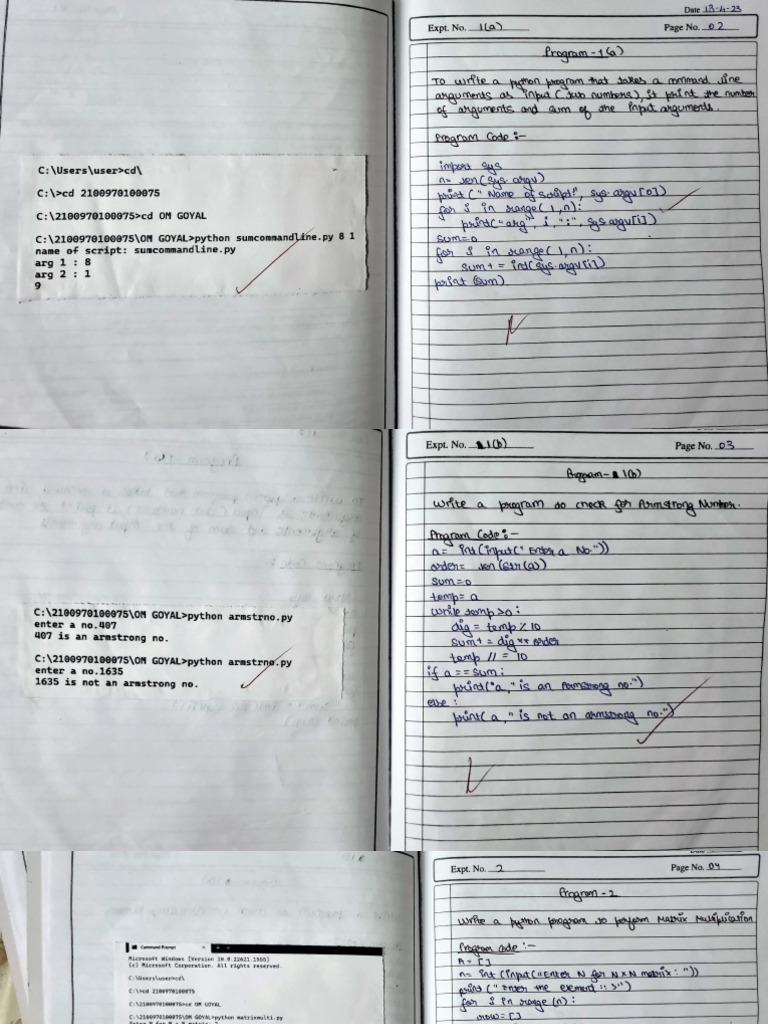 Date 13-4-23
Expt. No. 1(a)
Page No. 02
Program-1(a)
To write a python program that takes a command line
arguments as input (sub numbers), it print the number
of arguments and sum of the input arguments.
Program Code :-
import sys
n= len(sys.argv)
print (" Name of script:", sys.argv[0])
for i in range(1,n):
print("arg", i, ":", sys.argv[i])
sum=0
for i in range(1,n):
sum+ = int(sys.argv[i])
print (sum)
C:\Users\user>cd\
C:\>cd 2100970100075
C:\2100970100075>cd OM GOYAL
C:\2100970100075\OM GOYAL>python sumcommandline.py 8 1
name of script: sumcommandline.py
arg 1 : 8
arg 2 : 1
9
Expt. No. 1(b)
Page No. 03
Program- 1(b)
Write a program do check for Armstrong Number.
Program Code :-
a= int(input(" Enter a No."))
order= len(str(a))
sum=0
temp= a
while temp>0 :
dig = temp % 10
sum+ = dig ** order
temp // = 10
if a == sum :
print("a, " is an Armstrong no.")
else :
print( a , " is not an armstrong no.")
C:\2100970100075\OM GOYAL>python armstrno.py
enter a no.407
407 is an armstrong no.
C:\2100970100075\OM GOYAL>python armstrno.py
enter a no.1635
1635 is not an armstrong no.
Expt. No. 2
Page No. 04
Program - 2
Write a python program to perform Matrix Multiplication
Program code :-
A = []
n= int (input("Enter N for N x N matrix : "))
print (" Enter the element :: >")
for i in range (n) :
row= []
Command Prompt
Microsoft Windows [Version 10.0.22621.1555]
(c) Microsoft Corporation. All rights reserved.
C:\Users\user>cd\
C:\>cd 2100970100075
C:\2100970100075>cd OM GOYAL
C:\2100970100075\OM GOYAL>python matrixmulti.py